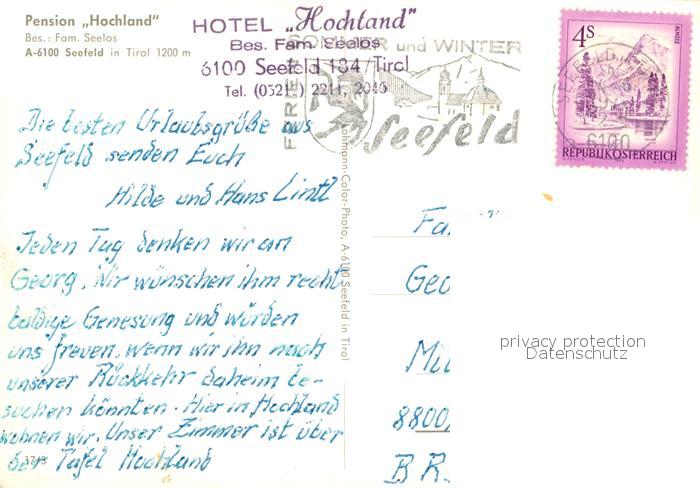 Pension „Hochland"
Bes.: Fam. Seelos
A-6100 Seefeld in Tirol 1200 m
HOTEL „Hochland"
Bes. Fam. Seelos
6100 Seefeld 184/Tirol
Tel. 2211, 2040
FERIEN
SOMMER und WINTER
Seefeld
4S
ALMSEE
6100
REPUBLIK ÖSTERREICH
Die besten Urlaubsgrüße aus
Seefeld senden Euch
Hilde und Hans Lintl
Jeden Tag denken wir an
Georg. Wir wünschen ihm recht
baldige Genesung und würden
uns freuen, wenn wir ihn nach
unserer Rückkehr daheim be-
suchen könnten. Hier in Hochland
wohnen wir. Unser Zimmer ist über
der Tafel Hochland
Lohmann-Color-Photo, A-6100 Seefeld in Tirol
Fa
Geo
8800
BR
privacy protection
Datenschutz